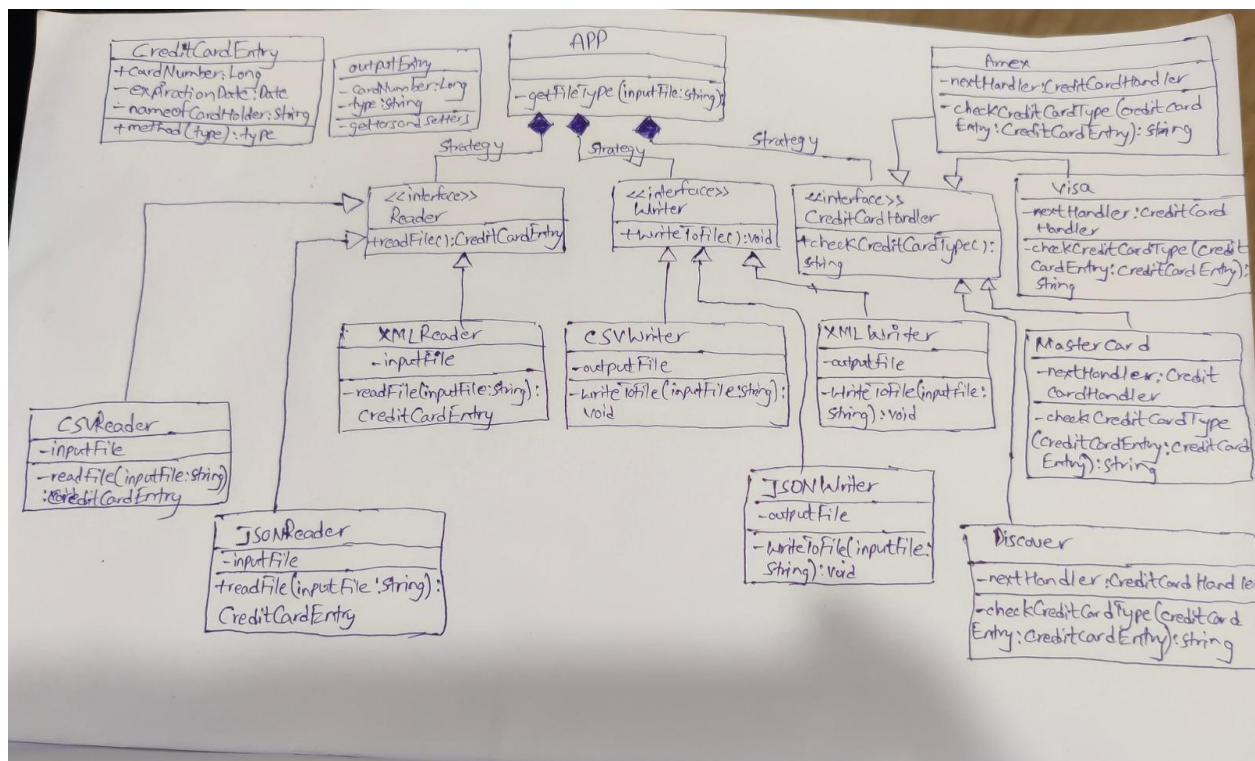 CreditCardEntry
+cardNumber:Long
-expirationDate:Date
-nameofCardHolder:String
+method(type):type
outputEntry
-cardNumber:Long
-type:string
-gettersand setters
APP
-getFileType(inputFile:string)
Strategy
Strategy
Strategy
Amex
-nextHandler:CreditCardHandler
-checkCreditCardType(creditcard
Entry:CreditCardEntry):string
<<interface>>
Reader
+readFile():CreditCardEntry
<<interface>>
Writer
+WriteToFile():void
<<interface>>
CreditCardHandler
+checkCreditCardType():
string
Visa
-nextHandler:CreditCard
Handler
-checkCreditCardType(Credit
CardEntry:CreditCardEntry):
string
XMLReader
-inputFile
-readFile(inputFile:string):
CreditCardEntry
CSVWriter
-outputFile
-WriteToFile(inputFile:string):
void
XMLWriter
-outputFile
-WriteToFile(inputfile:
String):void
MasterCard
-nextHandler:Credit
CardHandler
-checkCreditCardType
(CreditCardEntry:CreditCard
Entry):string
CSVReader
-inputFile
-readFile(inputFile:string)
:CreditCardEntry
JSONReader
-inputFile
+readFile(inputFile:String):
CreditCardEntry
JSONWriter
-outputFile
-WriteToFile(inputFile:
String):void
Discover
-nextHandler:CreditCardHandle
-checkCreditCardType(creditCard
Entry:CreditCardEntry):string